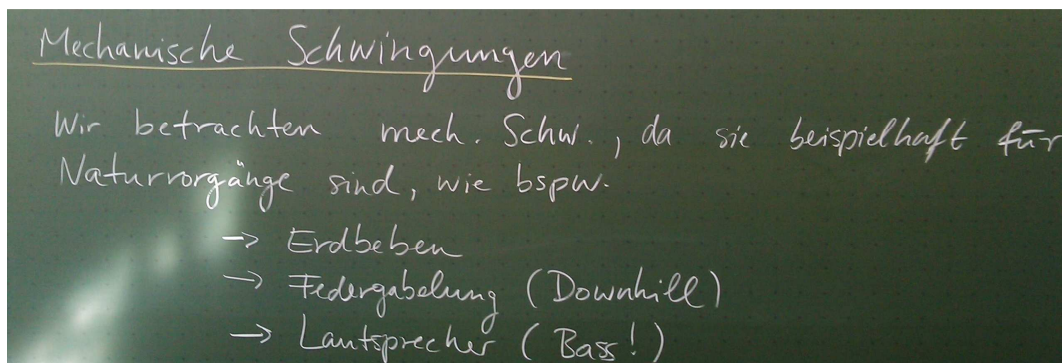 Mechanische Schwingungen
Wir betrachten mech. Schw., da sie beispielhaft für
Naturvorgänge sind, wie bspw.
→ Erdbeben
→ Federgabelung (Downhill)
→ Lautsprecher (Bass!)